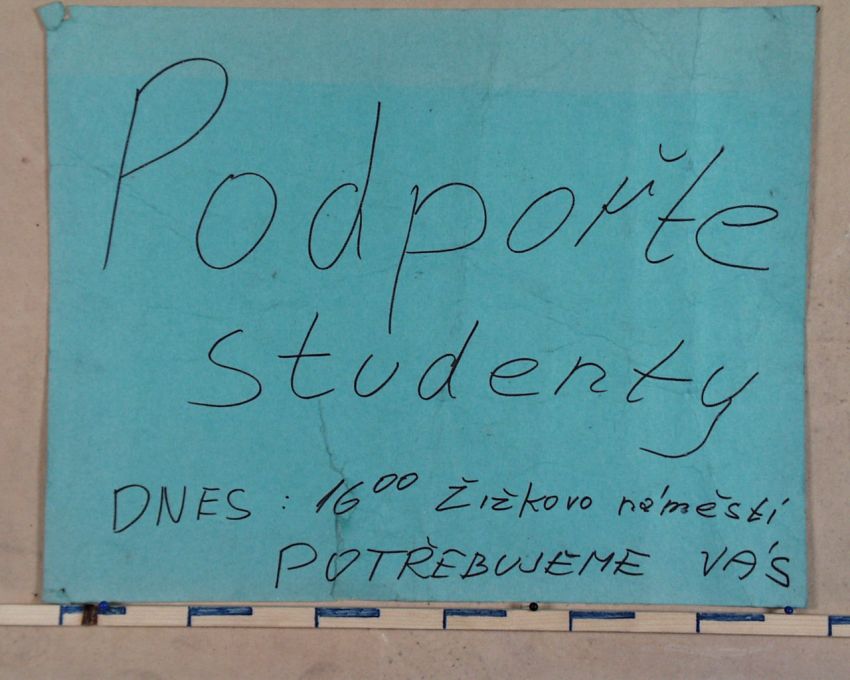 Podpořte
studenty
DNES : 16⁰⁰ Žižkovo náměstí
POTŘEBUJEME VÁS